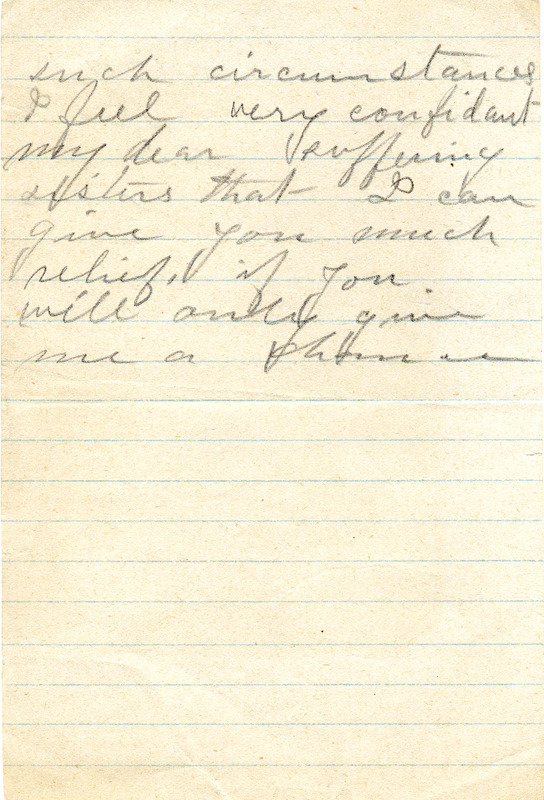 such circumstances
I feel very confidant
my dear suffering
sisters that I can
give you much
relief, if you
will only give
me a